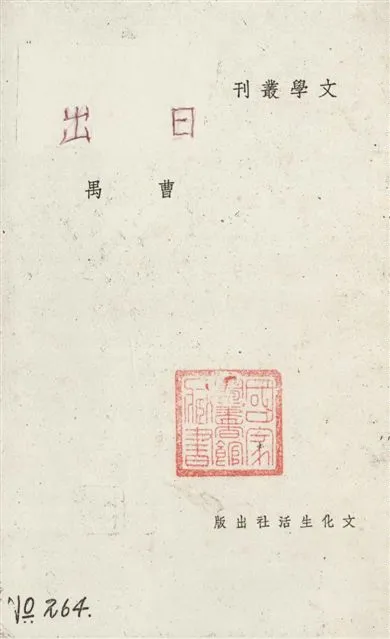 文學叢刊
日出
曹禺
國家
圖書館
藏書
文化生活社出版
No 264.